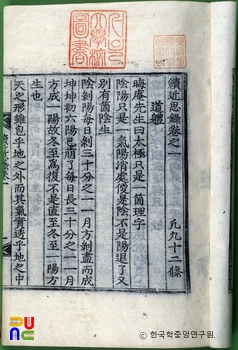 續近思錄卷之一
道體 凡九十二條
晦庵先生曰太極只是一箇理字
陰陽只是一氣陽治處便是陰不是陽退了又
別有箇陰生
陰剝陽每日剝三十分之一一月方剝盡而成
坤坤初六陽已萌了每日長三十分之一一月
方成一陽故冬至爲復不是直至冬至一陽方
生也
天之形雖包乎地之外而其氣實透乎地之中
圖書
PUNC
ⓒ 한국학중앙연구원